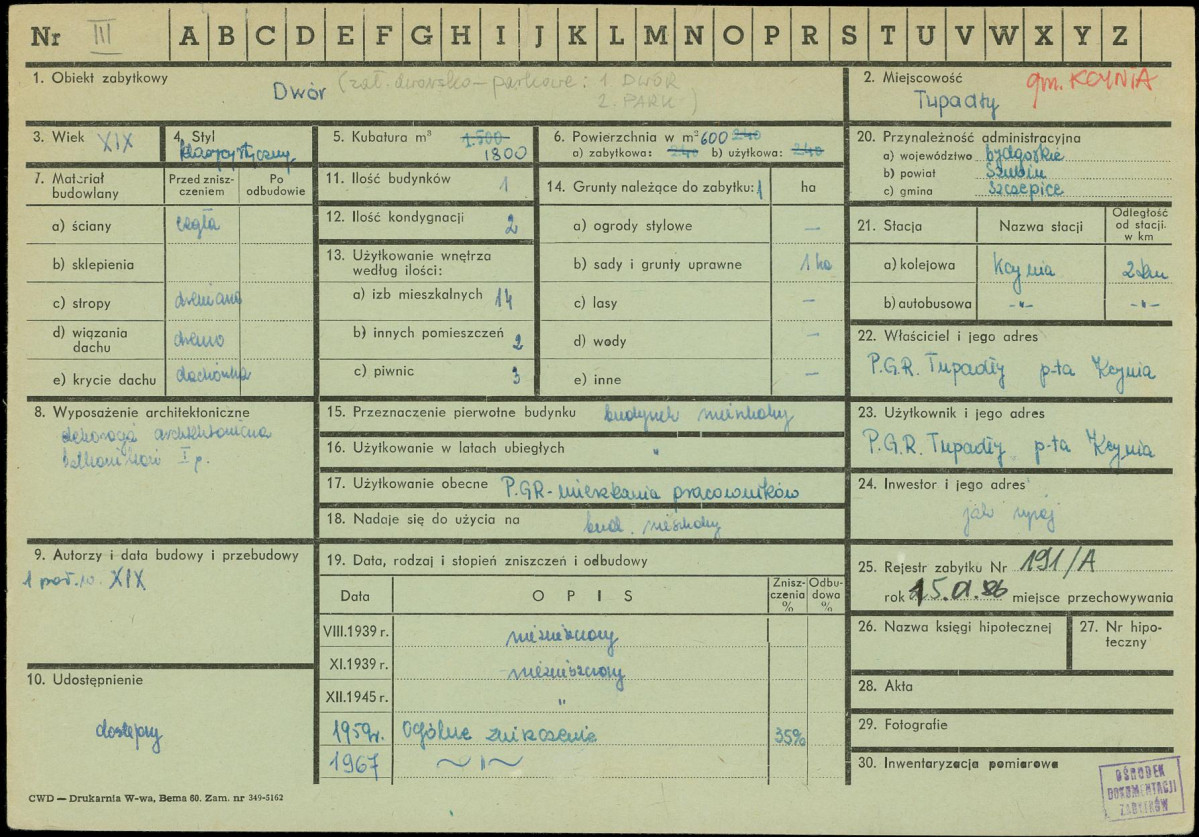 Nr III A B C D E F G H I J K L M N O P R S T U V W X Y Z
1. Obiekt zabytkowy
Dwór (zał. dworsko-parkowe: 1 DWÓR
2. PARK)
2. Miejscowość gm. KCYNIA
Tupadły
3. Wiek XIX
4. Styl
klasycystyczny
5. Kubatura m³ 1.500
1800
6. Powierzchnia w m² 600 240
a) zabytkowa: 240 b) użytkowa: 240
20. Przynależność administracyjna
a) województwo bydgoskie
b) powiat Szubin
c) gmina Szczepice
7. Materiał budowlany
Przed zniszczeniem
Po odbudowie
a) ściany cegła
b) sklepienia
c) stropy drewniane
d) wiązania dachu drewno
e) krycie dachu dachówka
11. Ilość budynków 1
12. Ilość kondygnacji 2
13. Użytkowanie wnętrza
według ilości:
a) izb mieszkalnych 14
b) innych pomieszczeń 2
c) piwnic 3
14. Grunty należące do zabytku: 1 ha
a) ogrody stylowe —
b) sady i grunty uprawne 1 ha
c) lasy —
d) wody —
e) inne —
21. Stacja
Nazwa stacji
Odległość od stacji w km
a) kolejowa Kcynia 2 km
b) autobusowa -"- -"-
22. Właściciel i jego adres
P.G.R. Tupadły p-ta Kcynia
8. Wyposażenie architektoniczne
dekoracja architektoniczna
15. Przeznaczenie pierwotne budynku budynek mieszkalny
16. Użytkowanie w latach ubiegłych "
17. Użytkowanie obecne P.G.R-mieszkania pracowników
18. Nadaje się do użycia na bud. mieszkalny
23. Użytkownik i jego adres
P.G.R. Tupadły p-ta Kcynia
24. Inwestor i jego adres
jak wyżej
9. Autorzy i data budowy i przebudowy
1 poł. w. XIX
10. Udostępnienie
dostępny
19. Data, rodzaj i stopień zniszczeń i odbudowy
Data
OPIS
Zniszczenia %
Odbudowa %
VIII.1939 r. niezniszczony
XI.1939 r. niezniszczony
XII.1945 r. "
1959r. Ogólne zniszczenie 35%
1967 ~"~
25. Rejestr zabytku Nr 191/A
rok 15.01.86 miejsce przechowywania
26. Nazwa księgi hipotecznej
27. Nr hipoteczny
28. Akta
29. Fotografie
30. Inwentaryzacja pomiarowa
OŚRODEK
DOKUMENTACJI
ZABYTKÓW
CWD — Drukarnia W-wa, Bema 60. Zam. nr 349-5162